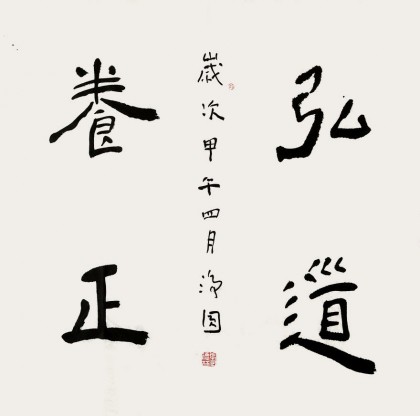 弘道
養正
歲次甲午四月淨因